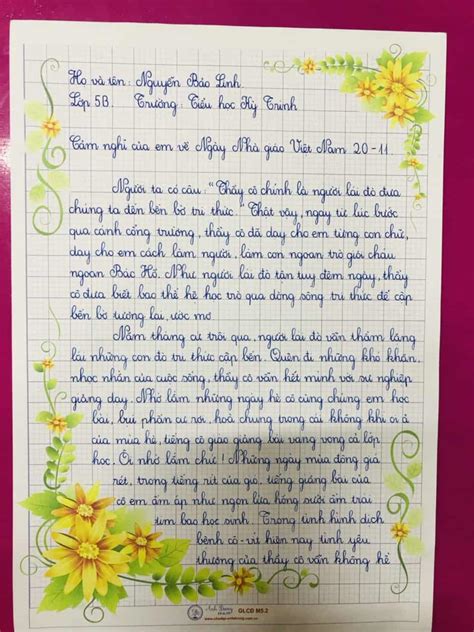 Họ và tên: Nguyễn Bảo Linh
Lớp 5B. Trường: Tiểu học Kỳ Trinh
Cảm nghĩ của em về Ngày Nhà giáo Việt Nam 20-11.
Người ta có câu: "Thầy cô chính là người lái đò đưa
chúng ta đến bến bờ tri thức." Thật vậy, ngay từ lúc bước
qua cánh cổng trường, thầy cô đã dạy cho em từng con chữ,
dạy cho em cách làm người, làm con ngoan trò giỏi cháu
ngoan Bác Hồ. Như người lái đò tận tụy đêm ngày, thầy
cô đưa biết bao thế hệ học trò qua dòng sông tri thức để cập
bến bờ tương lai, ước mơ.
Năm tháng cứ trôi qua, người lái đò vẫn thầm lặng
lái những con đò tri thức cập bến. Quên đi những khó khăn,
nhọc nhằn của cuộc sống, thầy cô vẫn hết mình với sự nghiệp
giảng dạy. Nhớ lắm những ngày hè cô cùng chúng em học
bài, bụi phấn cứ rơi, hoà chung trong cái không khí oi ả
của mùa hè, tiếng cô giáo giảng bài vang vọng cả lớp
học. Ôi nhớ lắm chứ! Những ngày mùa đông giá
rét, trong tiếng rít của gió, tiếng giảng bài của
cô em ấm áp như ngọn lửa hồng sưởi ấm trái
tim bao học sinh. Trong tình hình dịch
bệnh cô-vít hiện nay tình yêu
thương của thầy cô vẫn không hề
GLCD M5.2